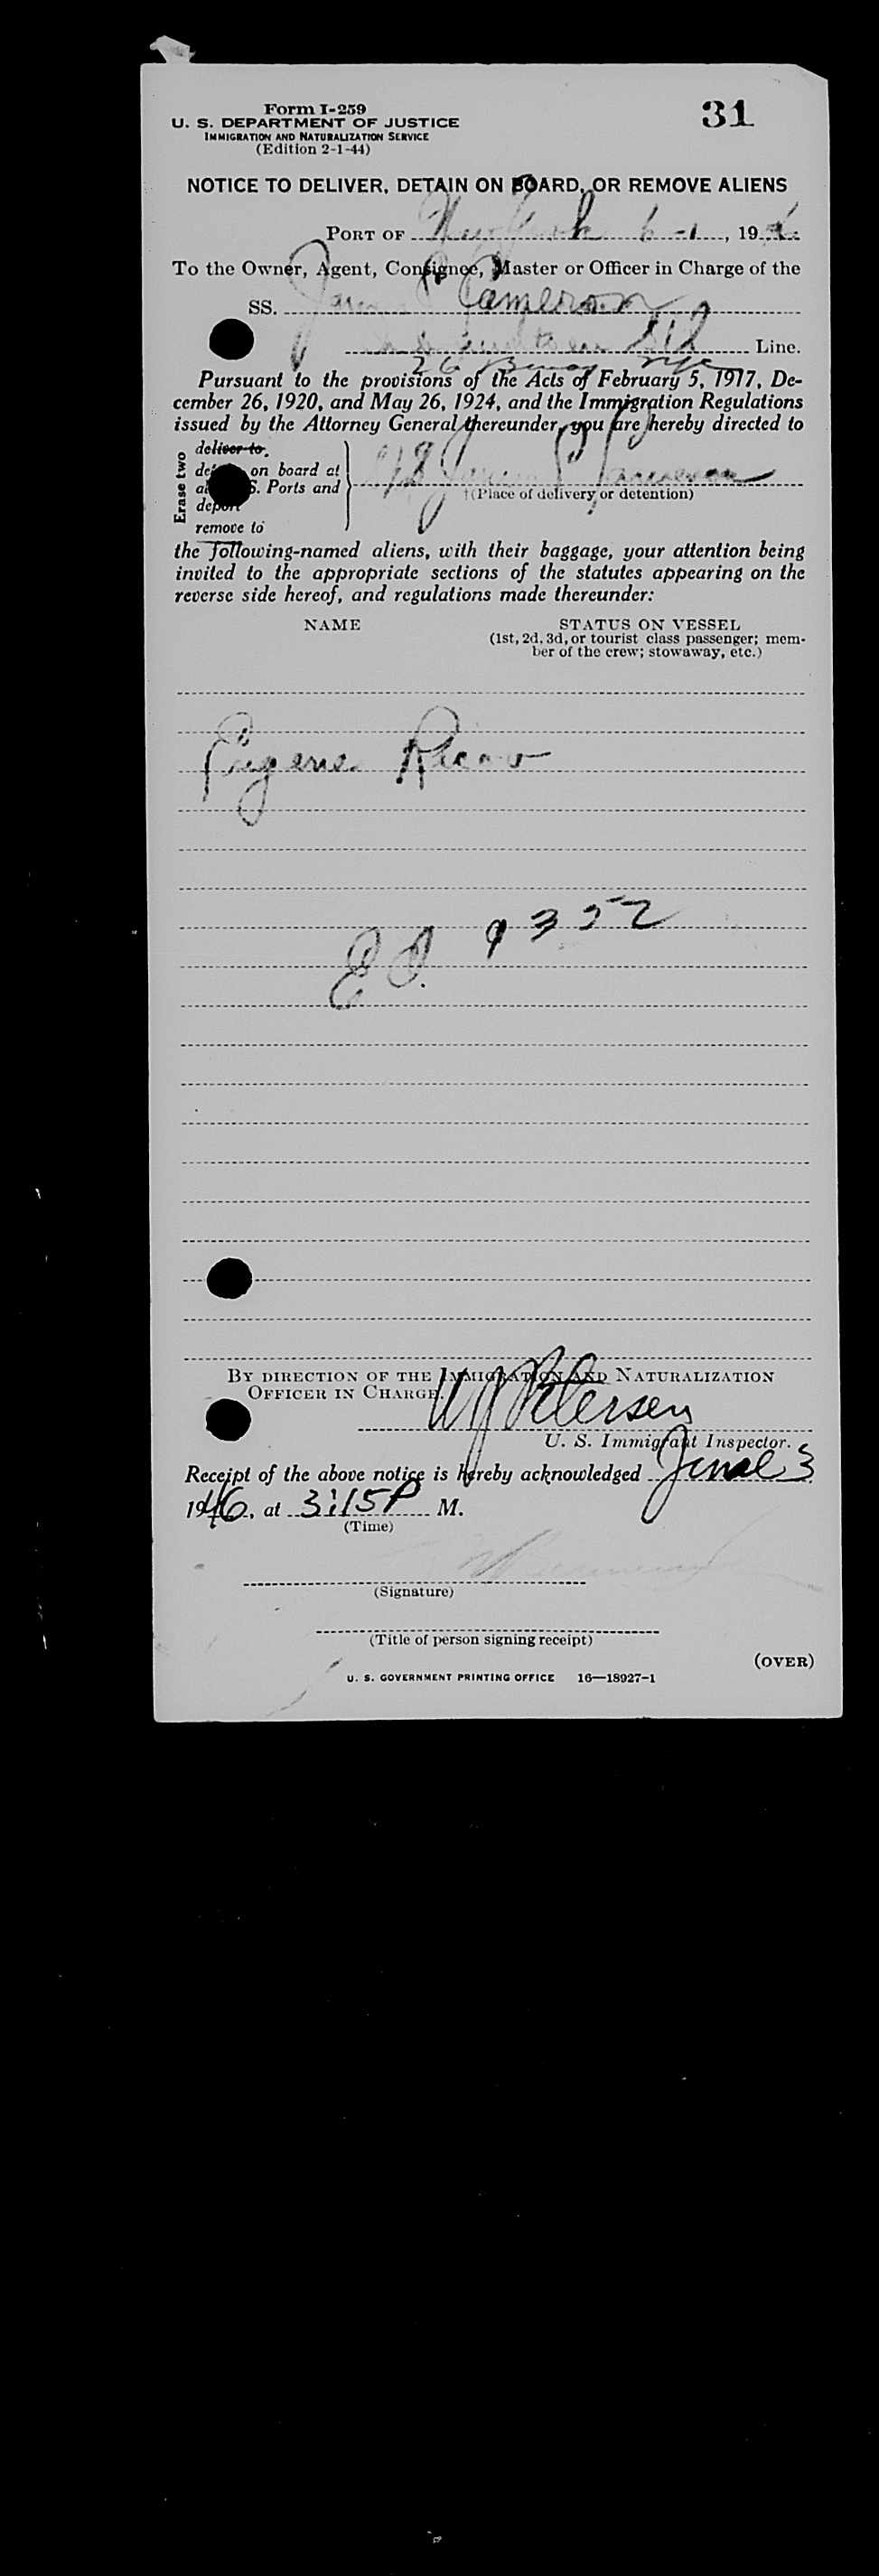 Form I-259
31
U. S. DEPARTMENT OF JUSTICE
IMMIGRATION AND NATURALIZATION SERVICE
(Edition 2-1-44)
NOTICE TO DELIVER, DETAIN ON BOARD, OR REMOVE ALIENS
PORT OF New York 6-1, 19
To the Owner, Agent, Consignee, Master or Officer in Charge of the
SS. James Cameron
Line.
26
Pursuant to the provisions of the Acts of February 5, 1917, De-
cember 26, 1920, and May 26, 1924, and the Immigration Regulations
issued by the Attorney General thereunder, you are hereby directed to
Erase two
deliver to,
on board at
S. Ports and
deport
remove to
James Cameron
†(Place of delivery or detention)
the following-named aliens, with their baggage, your attention being
invited to the appropriate sections of the statutes appearing on the
reverse side hereof, and regulations made thereunder:
NAME
STATUS ON VESSEL
(1st, 2d, 3d, or tourist class passenger; mem-
ber of the crew; stowaway, etc.)
Eugene
9352
BY DIRECTION OF THE IMMIGRATION AND NATURALIZATION
OFFICER IN CHARGE.
W J Petersen
U. S. Immigrant Inspector.
Receipt of the above notice is hereby acknowledged June 3
1946, at 3:15 P M.
(Time)
(Signature)
(Title of person signing receipt)
(OVER)
U. S. GOVERNMENT PRINTING OFFICE 16—18927-1